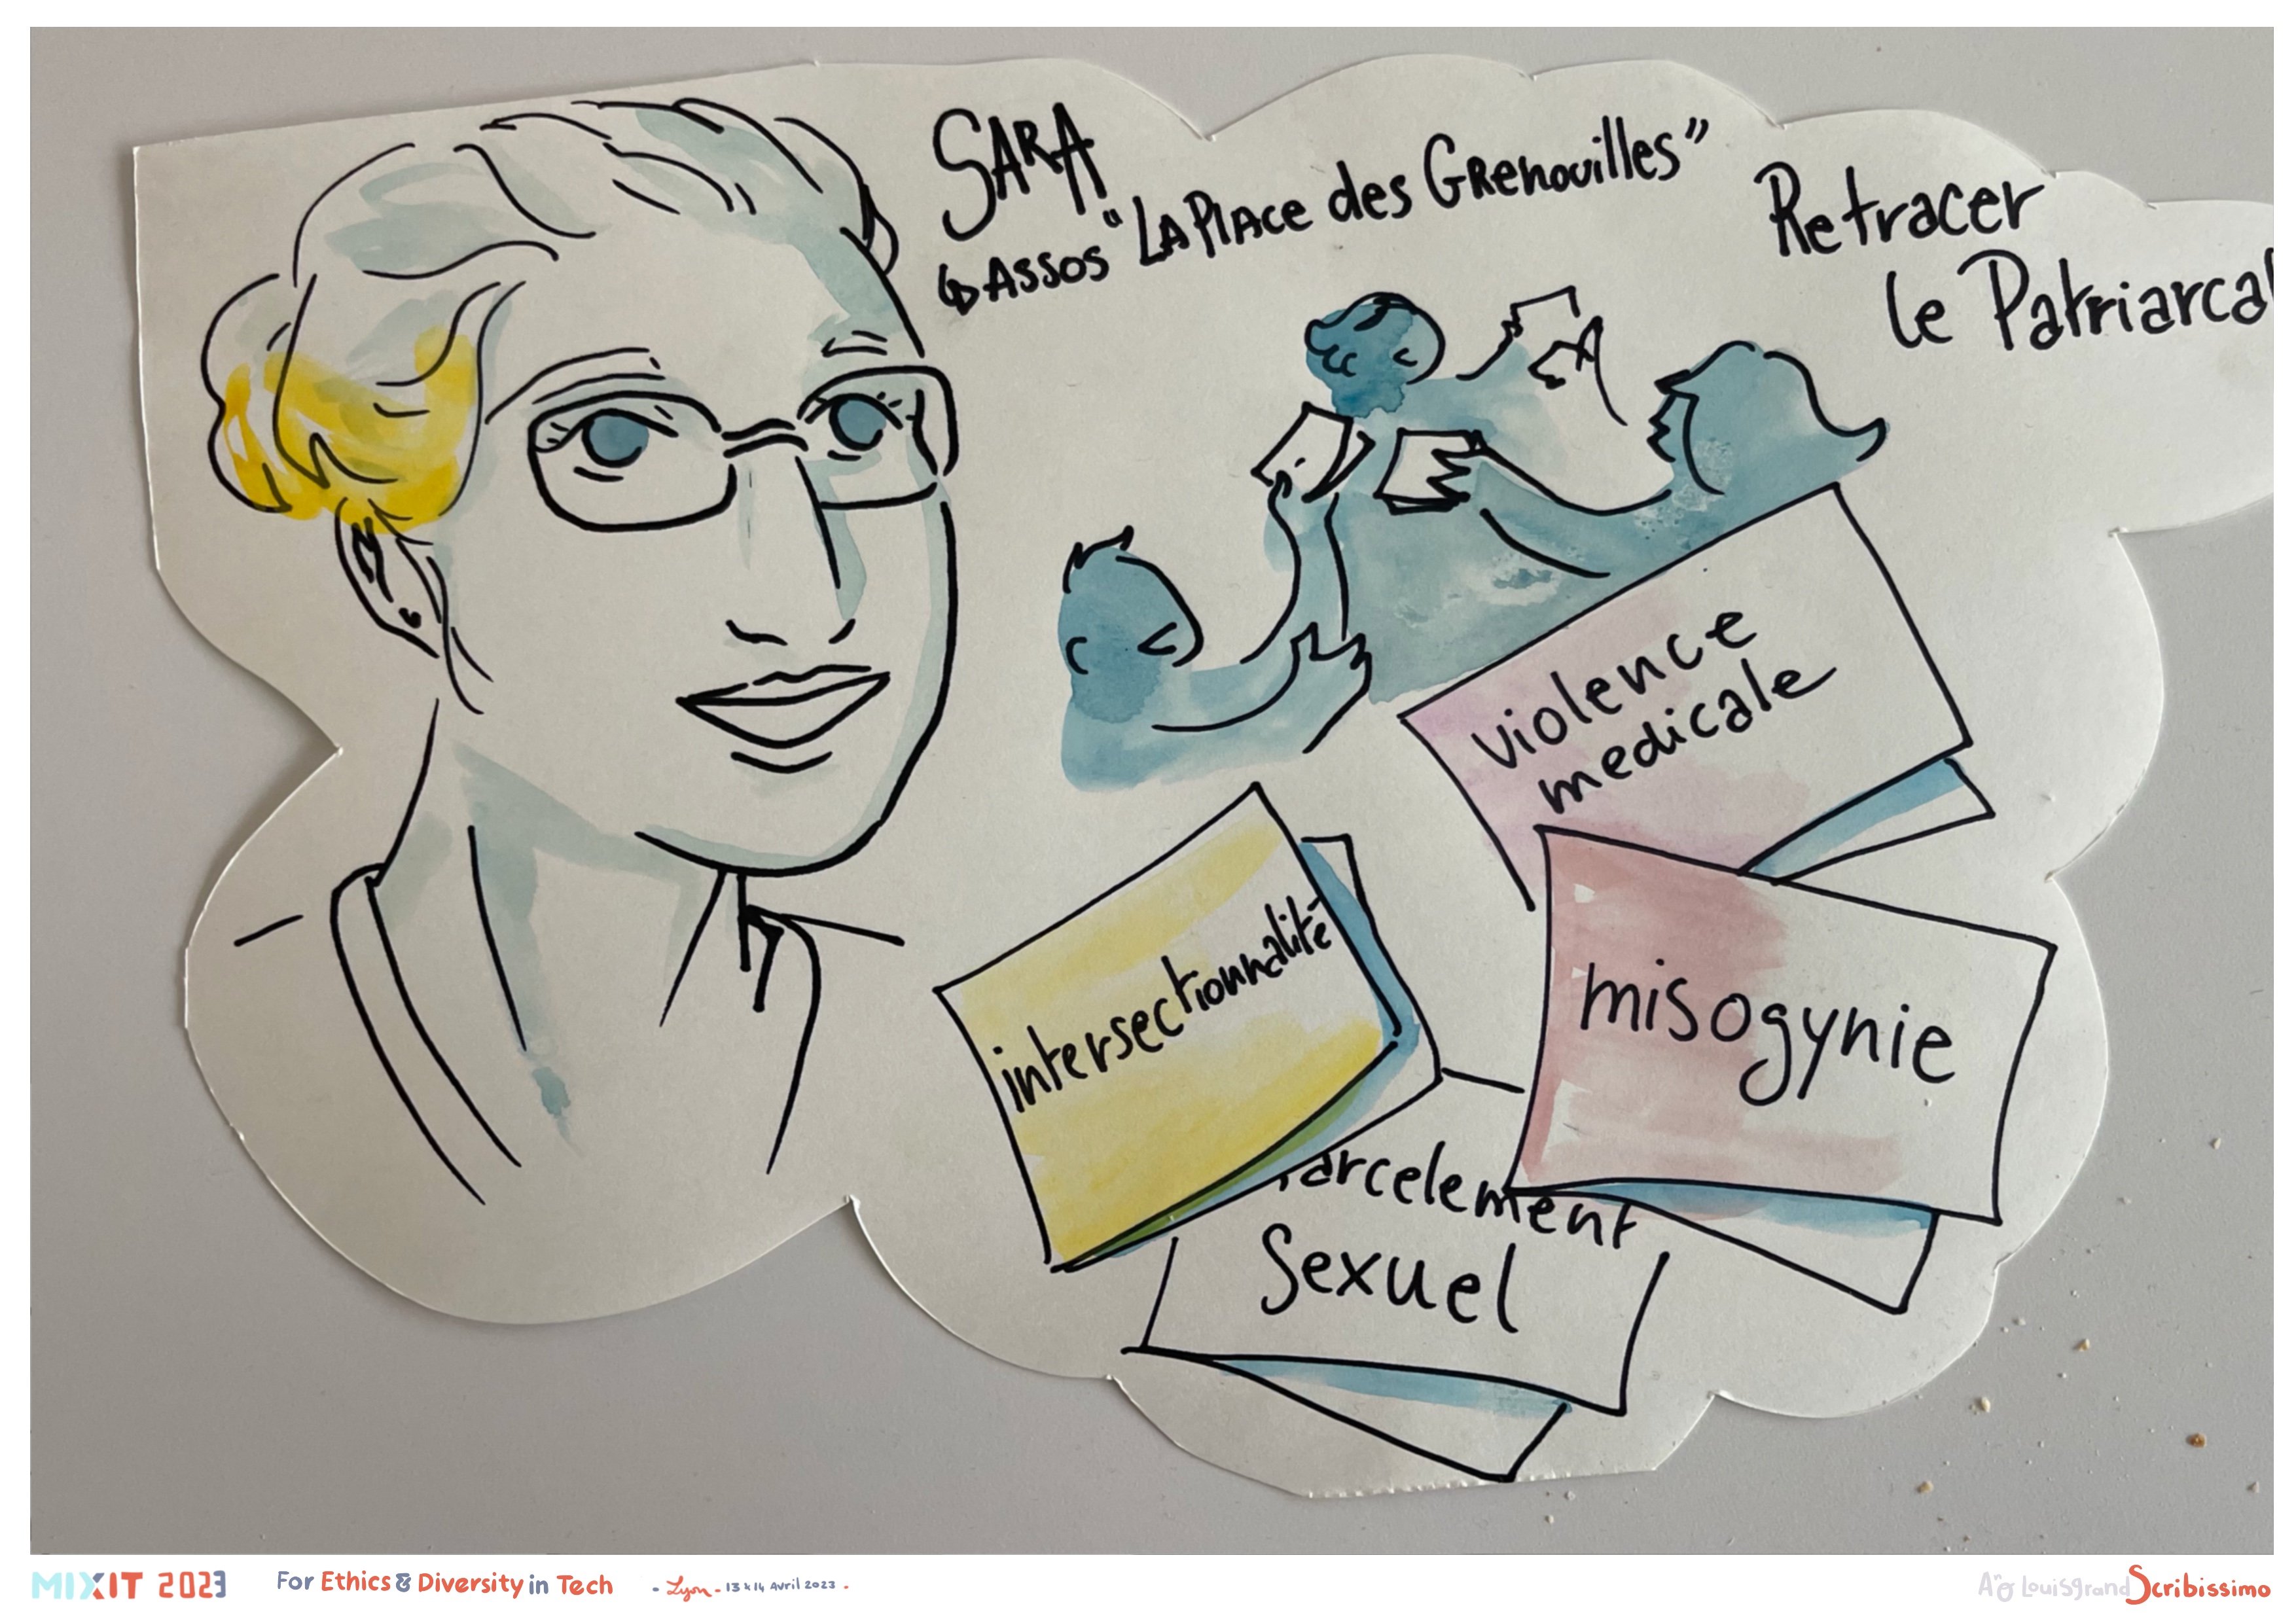 SARA
Assos "La Place des Grenouilles"
Retracer
le Patriarcat
violence
medicale
intersectionnalité
misogynie
arcelement
Sexuel
MIXIT 2023
For Ethics & Diversity in Tech
- Lyon - 13 & 14 Avril 2023 -
Louisgrand Scribissimo